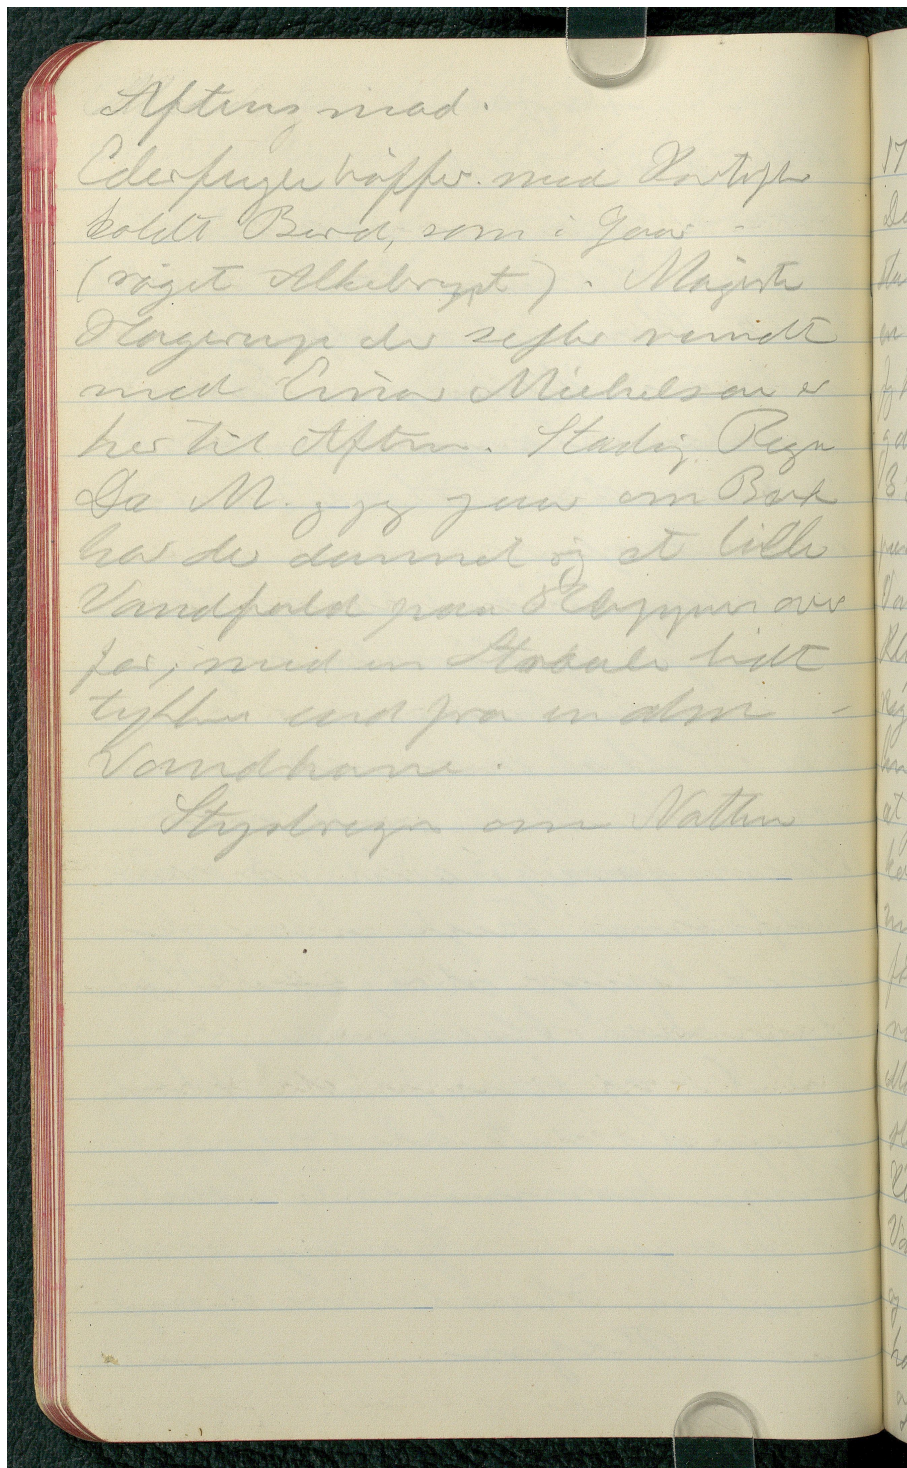 Aftensmad.
Ederfuglebøffer med Kartofler
koldt Bord, som i Gaar -
(røget Alkebryst). Magister
Hagerup der sejler rundt
med Einar Mikkelsen er
her til Aften. Stadig Regn
Da M. og jeg gaar om Bord
har der dannet sig et lille
Vandfald paa Klippen over
for, med en Straale lidt
tykkere end fra en alm -
Vandhane.
Styrtregn om Natten